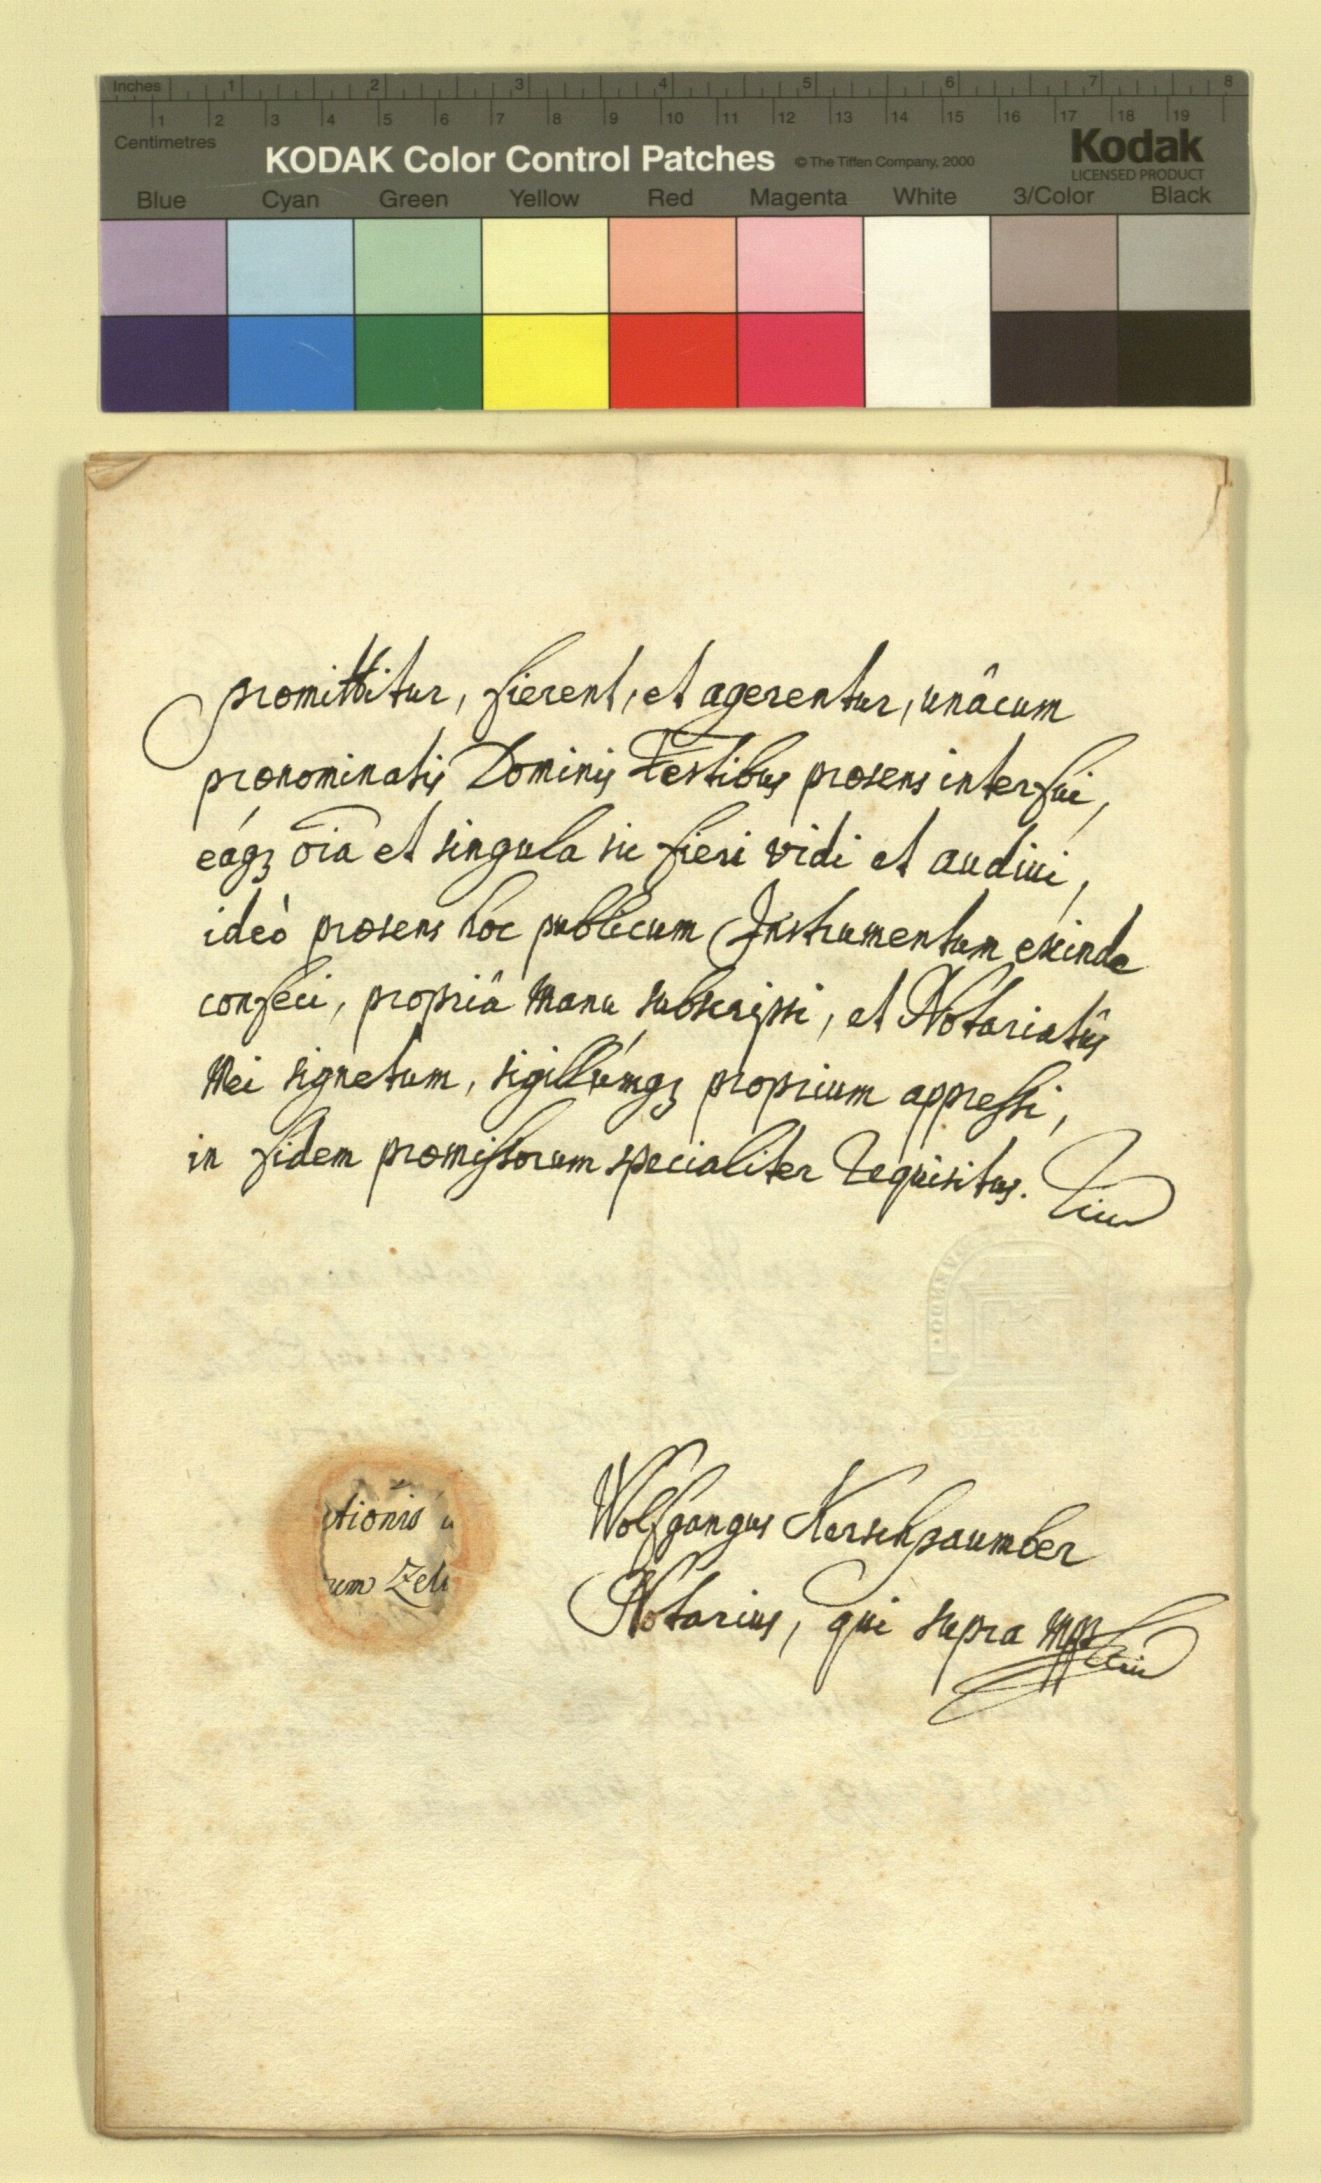 Inches 1 2 3 4 5 6 7 8
1 2 3 4 5 6 7 8 9 10 11 12 13 14 15 16 17 18 19
Centimetres
KODAK Color Control Patches © The Tiffen Company, 2000 Kodak
LICENSED PRODUCT
Blue Cyan Green Yellow Red Magenta White 3/Color Black
præmittitur, fierent, et agerentur, unâcum
prænominatis Dominis Testibus præsens interfui,
eáqꝫ oı̅a et singula sic fieri vidi et audivi,
ideò præsens hoc publicum Instrumentum exinde
confeci, propriâ manu subscripsi, et Notariatûs
mei signetum, sigillúmqꝫ proprium appressi,
in fidem præmissorum specialiter requisitus.
Wolfgangus Kerschpaumber
Notarius, qui supra mpp
ctionis
um Zele